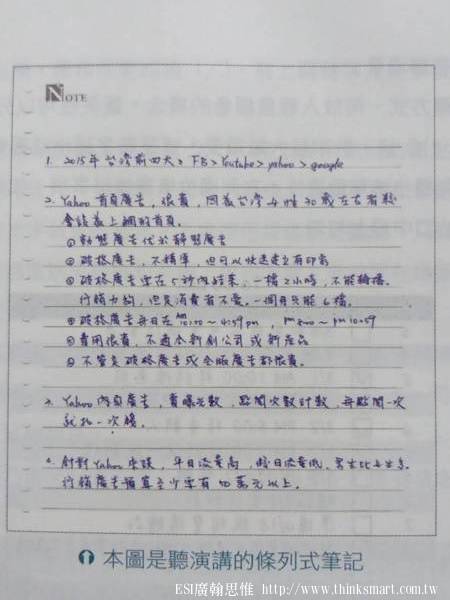 NOTE
1. 2015年台灣前四大：FB>Youtube>yahoo>google
2. Yahoo首頁廣告，很貴，因為台灣女性30歲左右者
會設為上網的首頁。
①動態廣告優於靜態廣告
②破格廣告，不精準，但可以快速建立有印象
③破格廣告要在5秒內結束，一檔2小時，不能輪播。
行銷力夠，但是消費者不愛。一個月只能6檔。
④破格廣告每日在 10:00～4:59pm，pm 8:00～pm 10:59
⑤費用很貴，不適合新創公司或新產品
⑥不管是破格廣告或全版廣告都很貴。
3. Yahoo內頁廣告，賣曝光數，點閱次數計數，每點閱一次
就扣一次錢。
4. 針對Yahoo來說，平日流量高，假日流量低。男生比女生多。
行銷廣告預算至少要有 萬元以上。
本圖是聽演講的條列式筆記
ESI廣翰思惟 http://www.thinksmart.com.tw